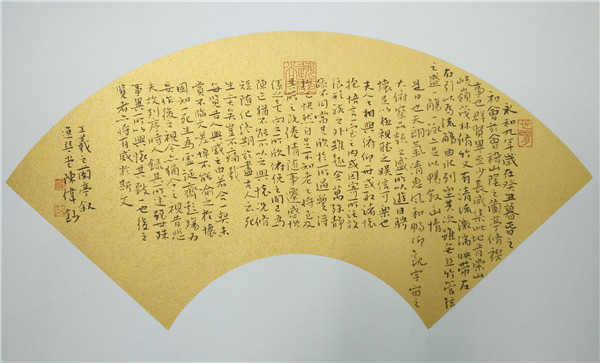 永和九年歲在癸丑暮春之
初會於會稽山陰之蘭亭脩禊
事也群賢畢至少長咸集此地有崇山
峻嶺茂林脩竹又有清流激湍映帶左
右引以為流觴曲水列坐其次雖無絲竹管弦
之盛一觴一詠亦足以暢敘幽情
是日也天朗氣清惠風和暢仰觀宇宙之
大俯察品類之盛所以遊目騁
懷足以極視聽之娛信可樂也
夫人之相與俯仰一世或取諸懷
抱悟言一室之內或因寄所託放
浪形骸之外雖趣舍萬殊靜
躁不同當其欣於所遇暫得
於己快然自足不知老之將至及
其所之既倦情隨事遷感慨
係之矣向之所欣俛仰之間已為
陳迹猶不能不以之興懷況脩
短隨化終期於盡古人云死
生亦大矣豈不痛哉
每覽昔人興感之由若合一契未
嘗不臨文嗟悼不能喻之於懷
固知一死生為虛誕齊彭殤為
妄作後之視今亦猶今之視昔悲
夫故列敘時人錄其所述雖世殊
事異所以興懷其致一也後之
覽者亦將有感於斯文
王羲之蘭亭敘
陳偉鈔